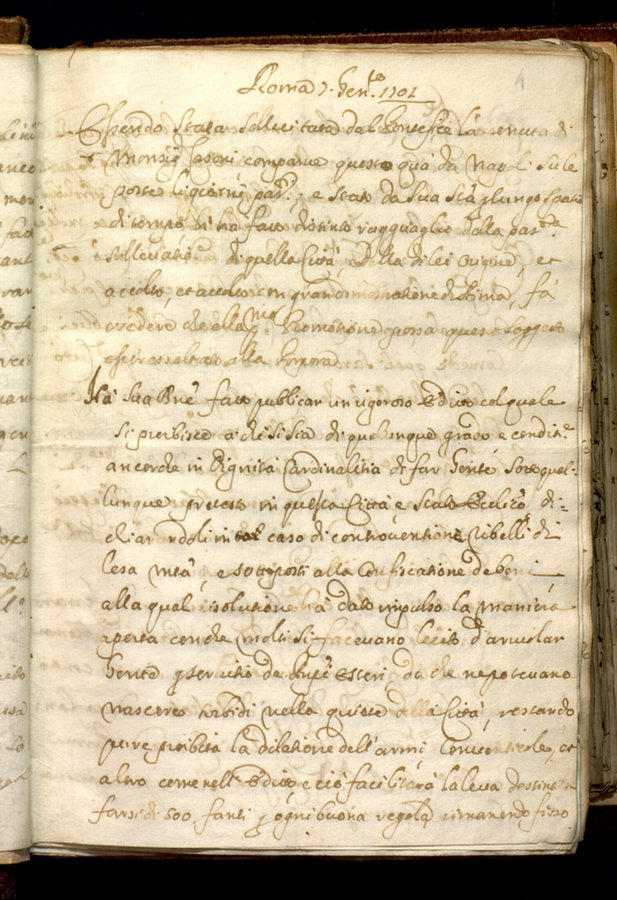 Roma 7. Gen.ro 1702
4
Essendo stata sollecitata dal Pontefice la venuta di
Monsig. Casoni comparve questo quà da Napoli su le
poste e stato da Sua Stà p lungo spatio
di tempo li hà fatto distinto ragguaglio della
sollevatione di quella Città, della di lei origine, et
accolto con grandi di stima, fà
credere che alla p.ma Promotione possa questo soggetto
esser essaltato alla Porpora
Hà Sua Bne fatto publicar un rigoroso Editto col quale
si proibisce à chi si sia di qualunque grado e condit.e
ancorche in Dignità Cardinalitia di far Gente sotto qual-
lunque pretesto in questa Città e Stato Eccl.co di-
chiarandoli in caso di controventione ribelli di
lesa Mtà, e sottoposti alla Confiscatione de beni
alla qual risolutione hà dato impulso la maniera
aperta con che molti si facevano lecito d'arruolar
Gente p servitio de Esteri, da che ne potevano
nascere nella quiete della Città, restando
pure proibita la delatione dell'armi Conventicole, et
altro come nell'Editto e ciò faciliterà la leva
farsi di 500 fanti p ogni buona regola rimanendo fisso